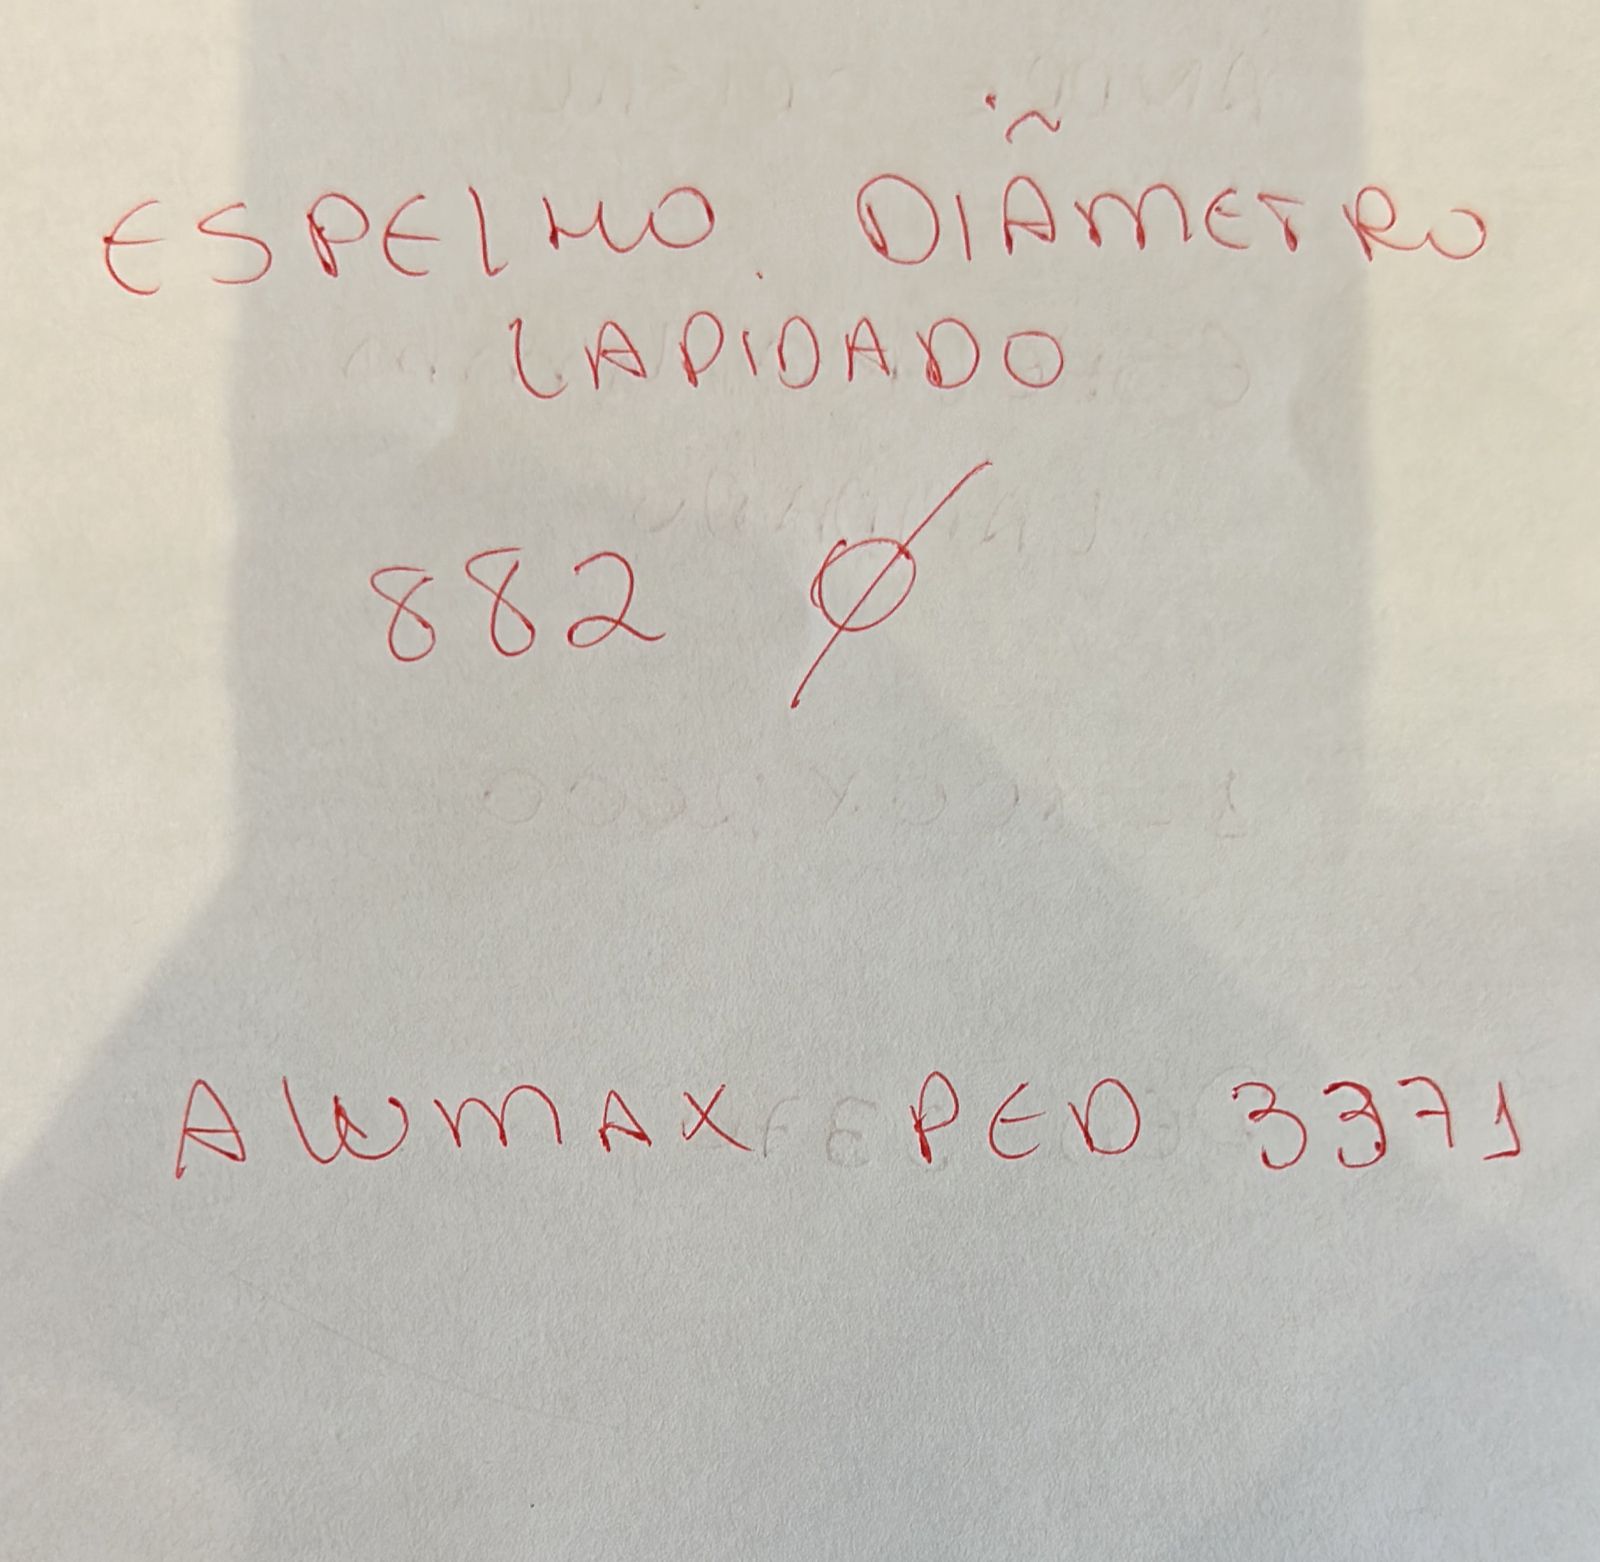 ESPELHO DIÃMETRO
LAPIDADO
882 Ø
ALUMAX PED 3371